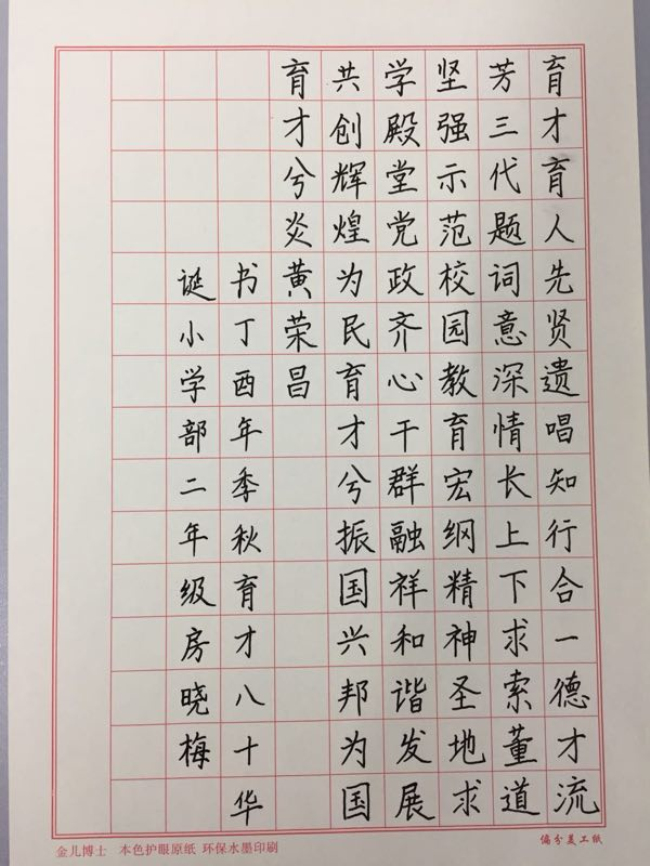 育才育人先贤遗唱知行合一德才流
芳三代题词意深情长上下求索董道
坚强示范校园教育宏纲精神圣地求
学殿堂党政齐心干群融祥和谐发展
共创辉煌为民育才兮振国兴邦为国
育才兮炎黄荣昌
书丁酉年季秋育才八十华
诞小学部二年级房晓梅
金儿博士 本色护眼原纸 环保水墨印刷
偏分美工纸